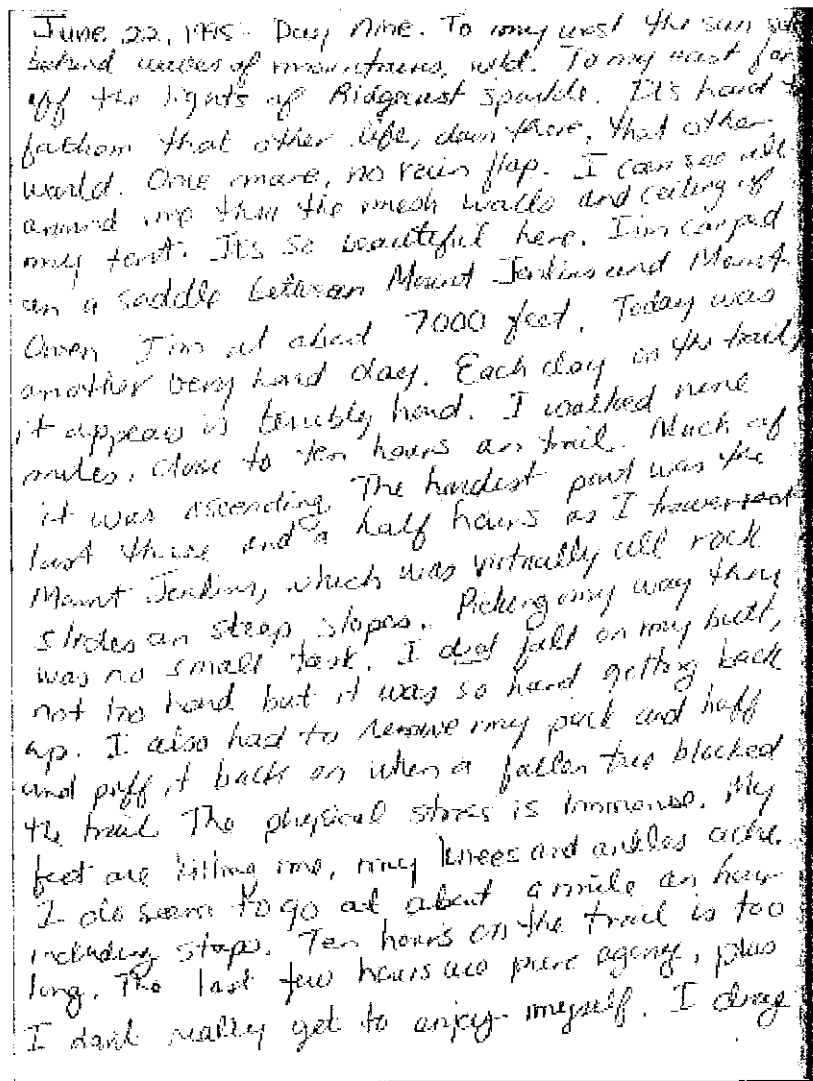 June 22, 1995. Day Nine. To my west the sun
behind waves of mountains, wild. To my east far
off the lights of Ridgecrest sparkle. It's hard
fathom that other life, down there, that other
world. Once more, no rain flap. I can see all
around me thru the mesh walls and ceiling of
my tent. It's so beautiful here. I'm camped
on a saddle between Mount Jenkins and Mount
Owen I'm at about 7000 feet. Today was
another very hard day. Each day on the trail,
it appears is terribly hard. I walked nine
miles, close to ten hours on trail. Much of
it was ascending. The hardest part was the
last three and a half hours as I traversed
Mount Jenkins, which was virtually all rock
slides on steep slopes. Picking my way thru
was no small task. I did fall on my butt,
not too hard but it was so hard getting back
up. I also had to remove my pack and huff
and puff it back on when a fallen tree blocked
the trail. The physical stress is immense. My
feet are killing me, my knees and ankles ache.
I do seem to go at about a mile an hour
including stops. Ten hours on the trail is too
long. The last few hours are pure agony, plus
I don't really get to enjoy myself. I drag